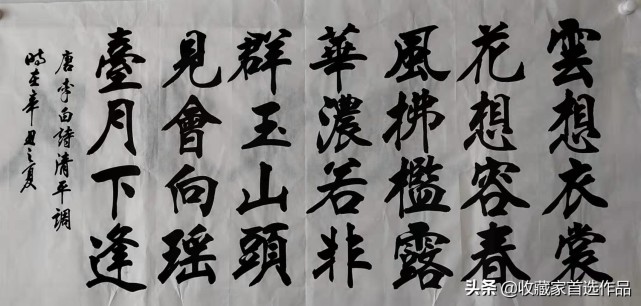 雲想衣裳
花想容春
風拂檻露
華濃若非
群玉山頭
見會向瑶
臺月下逢
唐李白詩清平調
時在辛丑之夏
头条@收藏家首选作品